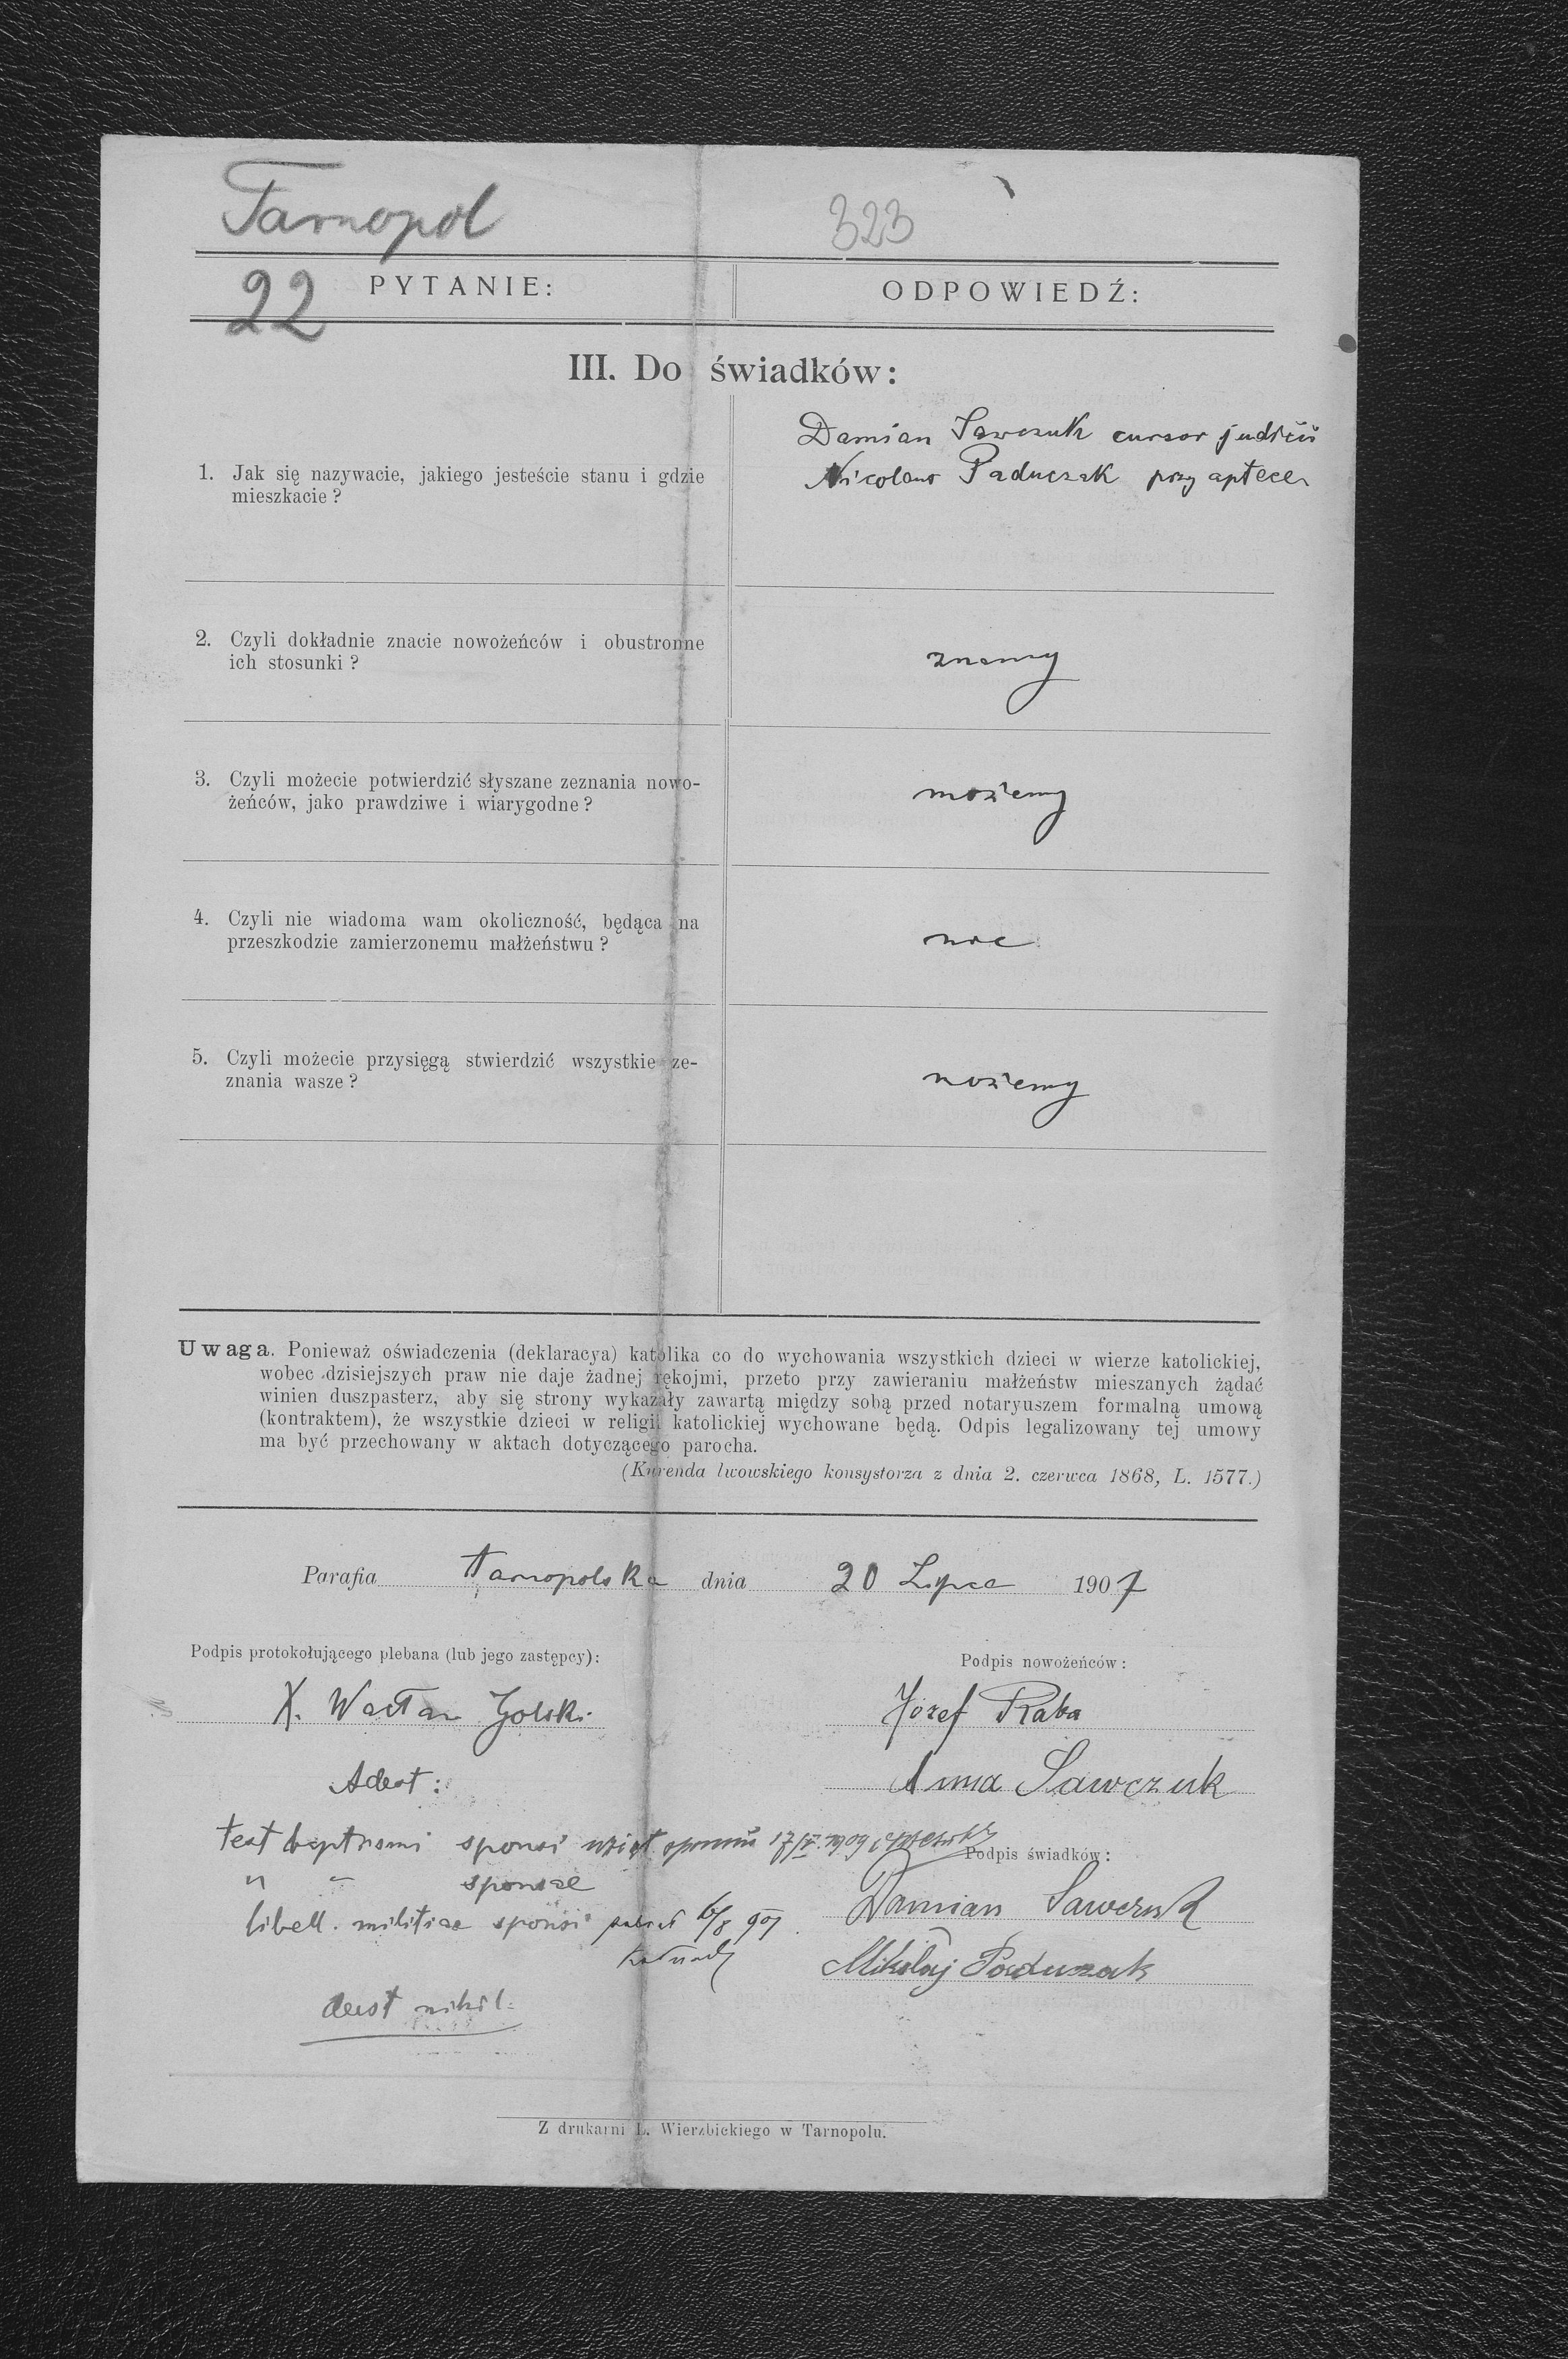 Tarnopol
323
22
PYTANIE:
ODPOWIEDŹ:
III. Do świadków:
1. Jak się nazywacie, jakiego jesteście stanu i gdzie
mieszkacie?
Damian Sawczuk cursor judicii
Nicolaus Paduczak przy aptece
2. Czyli dokładnie znacie nowożeńców i obustronne
ich stosunki?
znamy
3. Czyli możecie potwierdzić słyszane zeznania nowo-
żeńców, jako prawdziwe i wiarygodne?
możemy
4. Czyli nie wiadoma wam okoliczność, będąca na
przeszkodzie zamierzonemu małżeństwu?
5. Czyli możecie przysięgą stwierdzić wszystkie ze-
znania wasze?
możemy
Uwaga. Ponieważ oświadczenia (deklaracya) katolika co do wychowania wszystkich dzieci w wierze katolickiej,
wobec dzisiejszych praw nie daje żadnej rękojmi, przeto przy zawieraniu małżeństw mieszanych żądać
winien duszpasterz, aby się strony wykazały zawartą między sobą przed notaryuszem formalną umową
(kontraktem), że wszystkie dzieci w religii katolickiej wychowane będą. Odpis legalizowany tej umowy
ma być przechowany w aktach dotyczącego parocha.
(Kurenda lwowskiego konsystorza z dnia 2. czerwca 1868, L. 1577.)
Parafia Tarnopolska dnia 20 Lipca 1907
Podpis protokołującego plebana (lub jego zastępcy):
X. Wacław Golski
Podpis nowożeńców:
Józef Raba
Anna Sawczuk
Adest:
test baptismi sponsi 17/IV. 1909
" " sponsae
libell. militiae sponsi 6/8 907
deest nihil.
Podpis świadków:
Damian Sawczuk
Mikołaj Paduczak
Z drukarni L. Wierzbickiego w Tarnopolu.